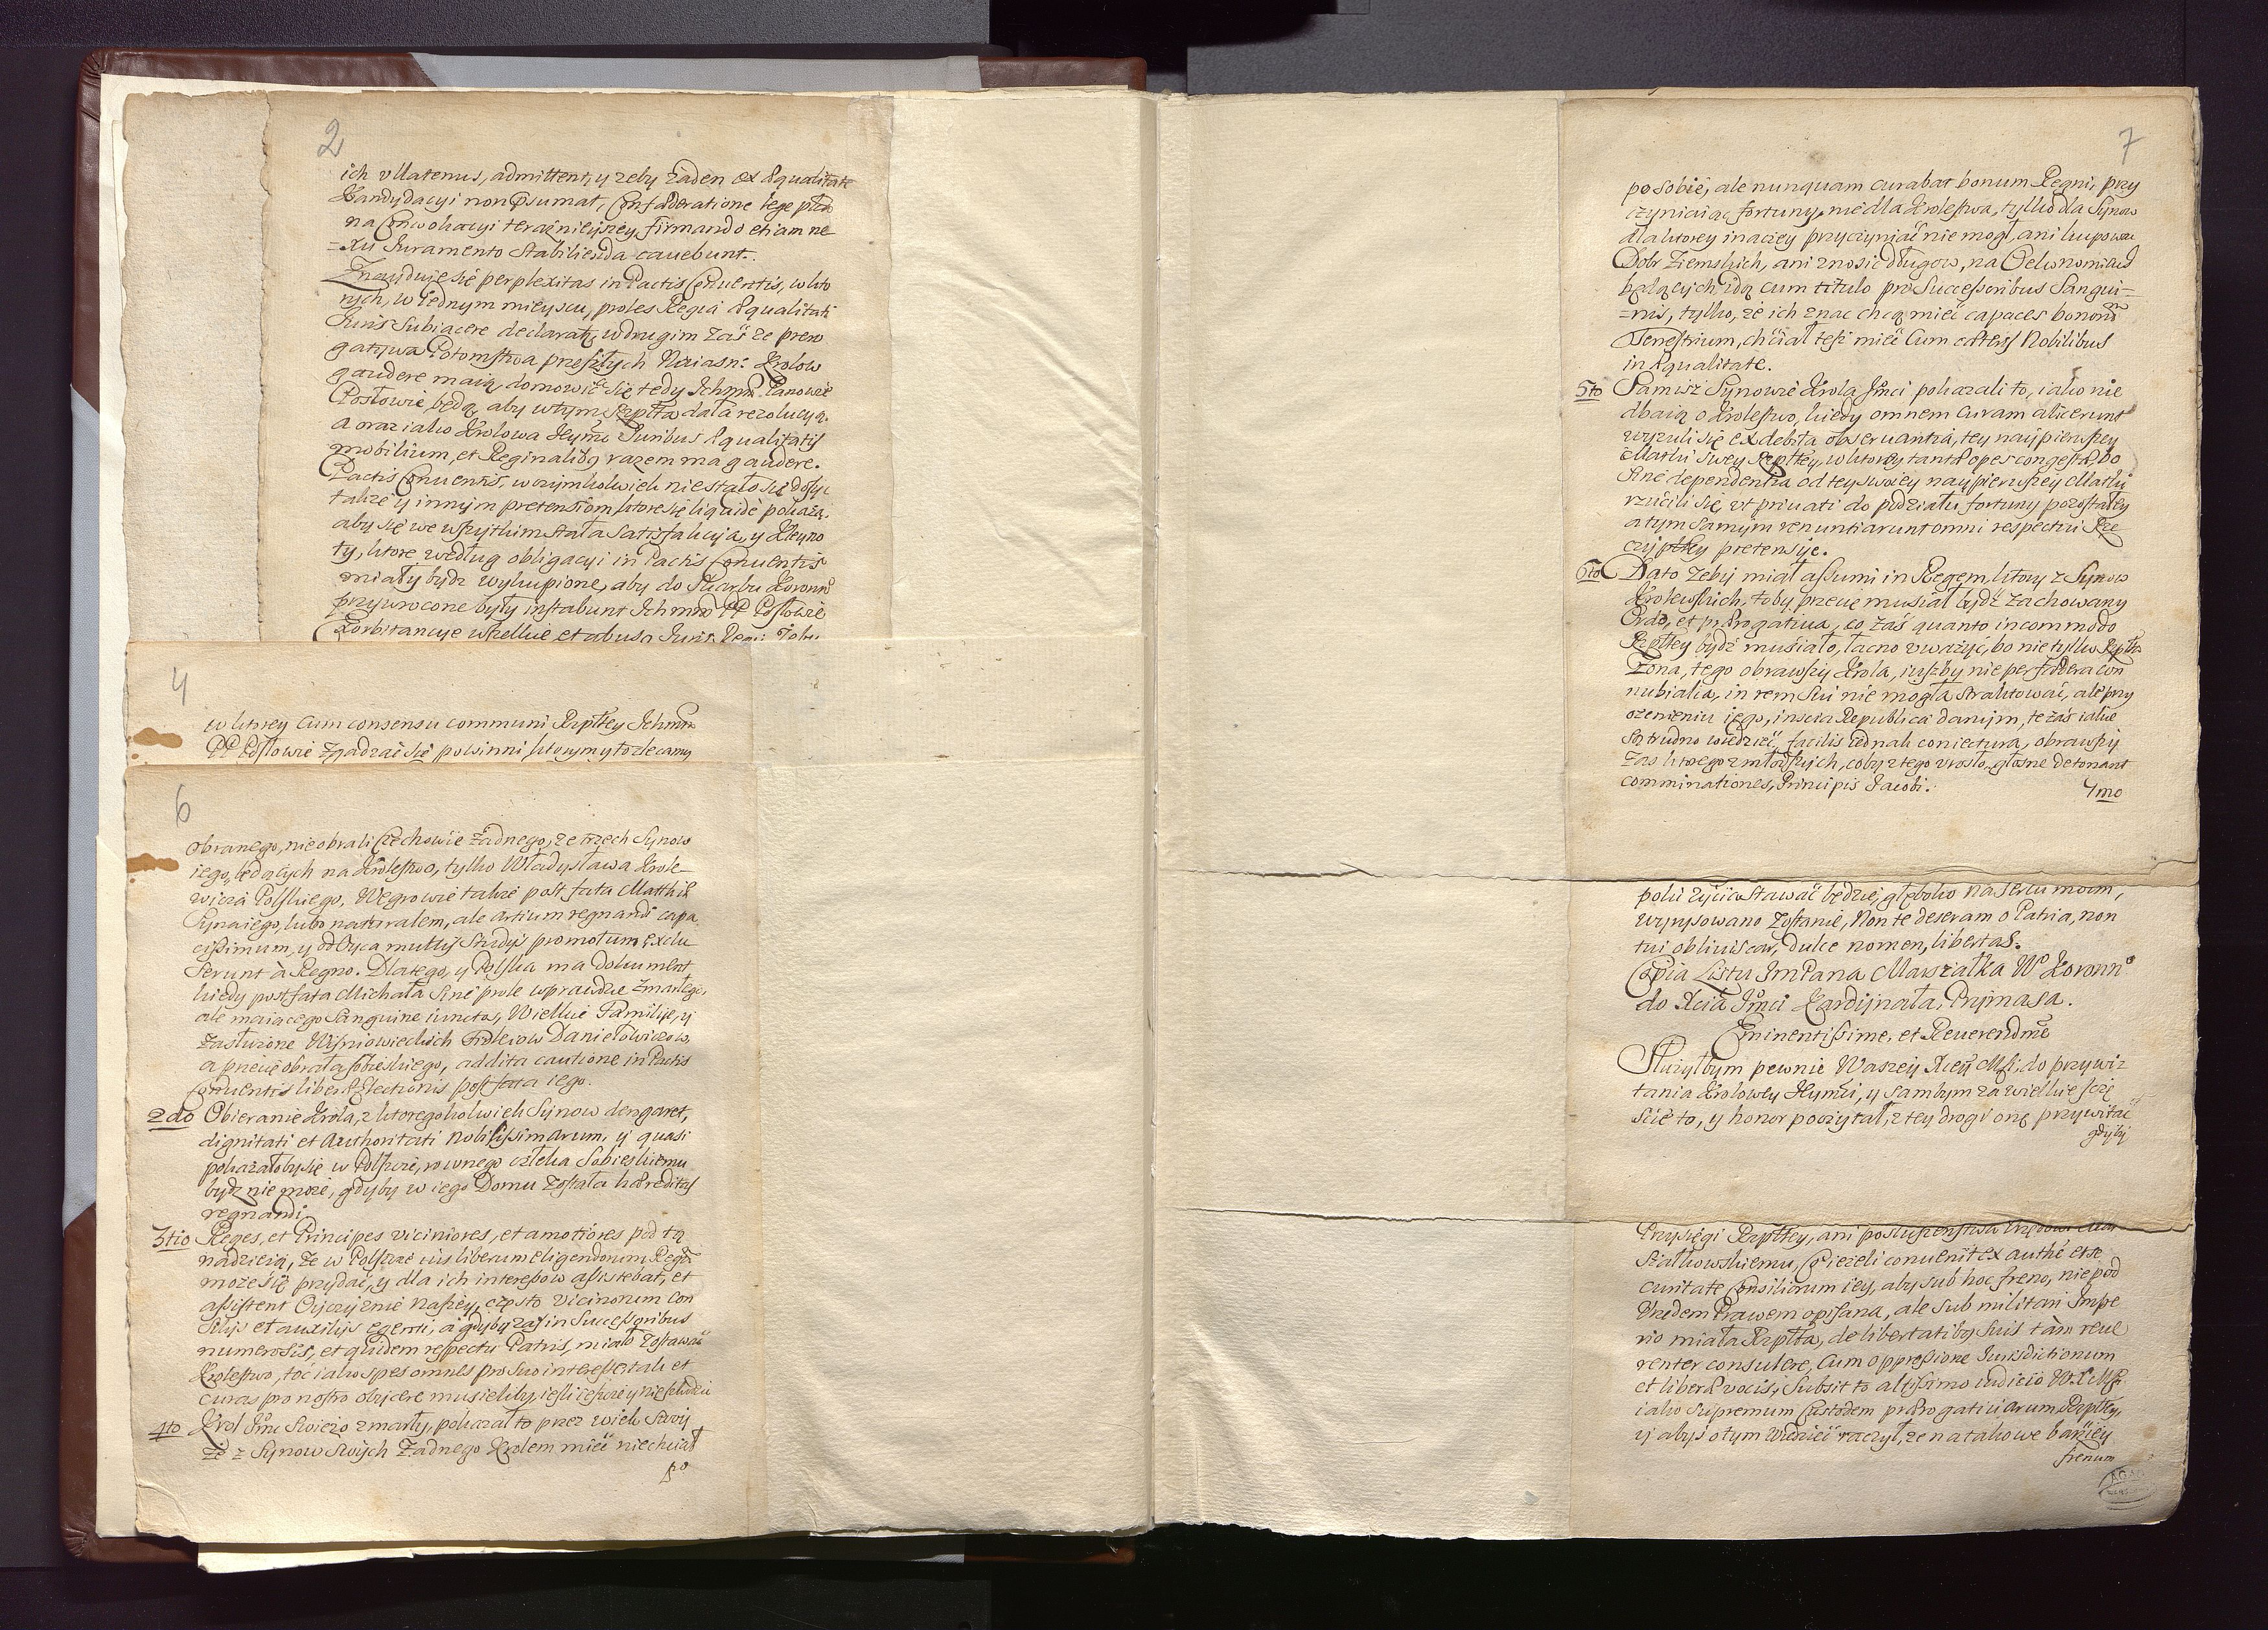 2
ich ullatenus, admittent, y zeby żaden ex æqualitate
Kandydacyi non p̃sumat, Confæderatione lege
na Conwokacyi teraznieyszey firmando etiam ne
=xu Juramento stabilienda cauebunt.
Znayduie się perplexitas in Pactis Conuentis, w kto
rych, w iednym mieyscu, proles Regia æqualitati
Juris Subiacere declarat, w drugim zaś ze prero
gatywa Potomstwa przeszłych Naiasn: Krolow
gaudere maią, domowić się tedy Ichmm Panowie
Posłowie będą, aby w tym Rzptta dała rezolucyą,
a oraz iako Krolowa Jeymć Juribus æqualitatis
mobilium, et Reginalibus razem ma gaudere.
Pactis Conuentis, w czymkolwiek nie stało się dosyc
takze y innym pretensiom ktore się liquidè pokażą,
aby się we wszytkim stała Satisfakcyja, y Kleyno
ty, ktore według obligacyi in Pactis Conuentis
miały bydz wykupione, aby do Skarbu Koronn⁰
przywrocone były instabunt Ichmm PP Posłowie
Exorbitancye wszelkie et abusa Juris
4
w ktorey cum consensu communi Rzptey Ichmm
PP Posłowie zgadzać się powinni, ktorym y to zlecamy
6
obranego, nie obrali Czechowie żadnego, ze trzech Synow
iego, będących na Krolestwo, tylko Władysława Krole
wicza Polskiego. Węgrowie takze post fata Matthiæ
Syna iego, lubo naturalem, ale artium regnandi capa
cissimum, y od Oyca multis Studys promotum exclu
serunt à Regno. Dlatego, y Polska ma dokument
kiedy post fata Michała sine prole wprawdzie zmarłego,
ale maiącego Sanguine iunctos, Wielkie Familije, y
zasłuzone Wiśniowieckich Daniełowiczow,
a przecie obrała Sobieskiego, addita cautione in Pactis
Conuentis liberæ Electionis post fata iego.
2do Obieranie Krola, z ktoregokolwiek Synow dengaret,
dignitati et Authoritati nobilissimarum, y quasi
pokazałoby się w Polszcze, rownego człeka Sobieskiemu
bydz nie może, gdyby w iego Domu została hæreditas
regnandi.
3tio Reges, et Principes viciniores, et amotiores pod tą
nadzieią, że w Polszcze ius liberum eligendorum Regum
może się przydać, y dla ich interessow assistebat, et
assistent Oyczyznie naszey, często vicinorum con
silijs et auxilijs egenti, à gdyby zaś in Successoribus
numerosis, et quidem respectu Patris, miało zostawać
Krolestwo, toć iako spes omnes pro suo interesse tak et
curas pro nostro obijcere musieliby, iesli ieszcze y nie szkodzić
4to Krol Jmc świeżo zmarły, pokazał to przez wiek swoy
że z Synow swoych żadnego Krolem mieć niechciał
po
7
po sobie, ale nunquam curabat bonum Regni, przy
czyniaiąc fortuny, nie dla Krolestwa, tylko dla Synow
dla ktorey inaczey przyczyniać nie mogł, ani kupować
Dobr Ziemskich, ani znosić długow, na Oekonomiach
będących, idą cum titulo pro Successoribus Sangui=
=nis, tylko, że ich znać chcą mieć capaces bonorum
Terrestrium, chciał tesz mieć cum cæteris Nobilibus
in æqualitate.
5to Samisz Synowie Krola Jmci pokazali to, iako nie
dbaią o Krolestwo, kiedy omnem curam abiecerunt
wyzuli się ex debita obseruantia, tey naypierwszey
Matki swey Rzptey, w ktorey tantæ opes congestæ, bo
sine dependentia od tey swoiey naypierwszey Matki
rzucili się, ut priuati do podziału fortuny pozostałey
a tym samym renuntiarunt omni respectui Rze
czyptey pretensye.
6to Dato żeby miał assumi in Regem, ktory z Synow
Krolewskich, toby przecie musiał bydź zachowany
Ordo, et prærogatiua, co zaś quanto incommodo
Rzptey bydź musiało, łacno uważyć, bo nie tylko Rzptta
Żona, tego obrawszy Krola, iuszby nie per fœdera con
nubialia, in rem sui nie mogła straktować, ale przy
ozenieniu iego, inscia Republica danym, te zaś iakie
są trudno wiedzieć, facilis iednak coniectura, obrawszy
zaś ktorego z młodszych, coby z tego urosło, głośne detonant
comminationes, Principis Jacobi.
7mo
poki życia stawać będzie, głęboko na sercu moim,
wyrysowano zostanie, Non te deseram o Patria, non
tui obliuiscar, dulce nomen, libertas.
Copia Listu JmPana Marszałka W⁰ Koronn⁰
do Xcia Jmci Kardynała, Prymasa.
Eminentissime, et Reuerendme
Służyłbym pewnie Waszey Xcey Mści, do przywi
tania Krolowey Jeymci, y sambym za wielkie szczę
ście to, y honor poczytał, z tey drogi onę przywitać
gdyby
Przysięgi Rzptey, ani posłuszeństwa Urzędowi Mar
szałkowskiemu, ieżeli conuenit ex authe et se
curitate Consiliorum iey, aby sub hoc freno, nie pod
Urzędem Prawem opisana, ale sub militari Impe
rio miała Rzptta, de libertatibus suis tàm reue
renter consulere, cum oppressione Jurisdictionum
et liberæ vocis, subsit to altissimo iudicio W.X.Mści
iako supremum Custodem prærogatiuarum Rzptey,
y abyś o tym wiedzieć raczył, że na takowe barziey
frenum